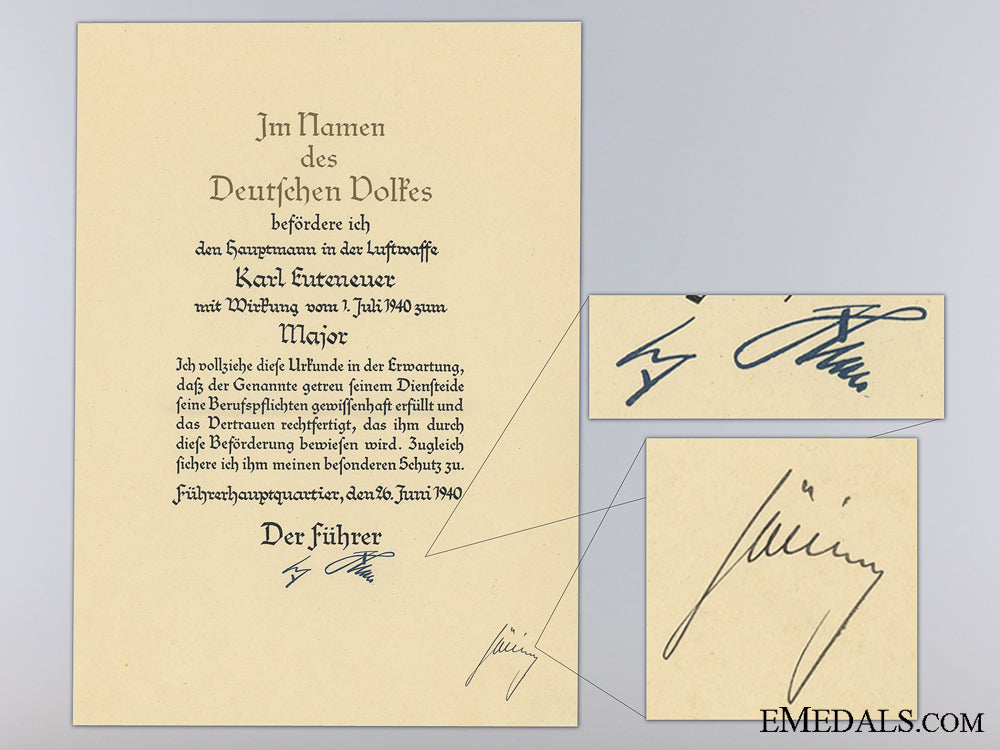 Im Namen
des
Deutſchen Volkes
befördere ich
den Hauptmann in der Luftwaffe
Karl Euteneuer
mit Wirkung vom 1. Juli 1940 zum
Major
Ich vollziehe dieſe Urkunde in der Erwartung,
daß der Genannte getreu ſeinem Dienſteide
ſeine Berufspflichten gewiſſenhaft erfüllt und
das Vertrauen rechtfertigt, das ihm durch
dieſe Beförderung bewieſen wird. Zugleich
ſichere ich ihm meinen beſonderen Schutz zu.
Führerhauptquartier, den 26. Juni 1940
Der Führer
Göring
Göring
EMEDALS.COM